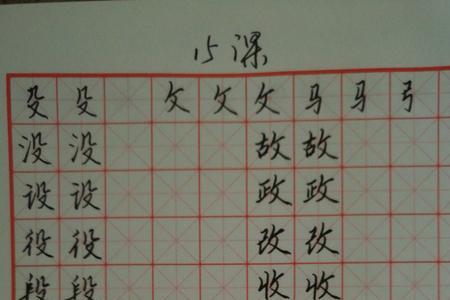 15课
殳 殳 攵 攵 攵 马 马 弓
没 没 故 故
设 设 政 政
役 役 改 改
段 段 收 收